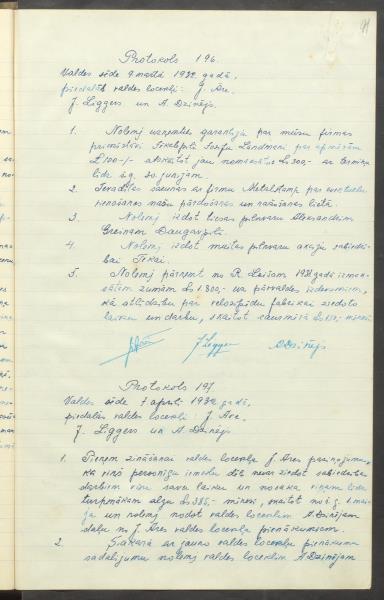 Protokols 196.
Valdes sēde 9 martā 1932. gadā,
piedalās valdes locekļi: J. Are.
J. Liggers un A. Dzinējs.
1. Nolemj uzņemties garantiju par mūsu firmas
pārstāvi Jozefu Landmani par
£100.-/- atskaitot jau Ls 300,- ar termiņu
līdz š.g. 30 jūnijam.
2. sarunas ar firmu Metalkump par
mašu pārdošanas un ražošanas lietā.
3. Nolemj izdot tiesas pilnvaru Aleksandram
Greinam Daugavpilī.
4. Nolemj izdot muitas pilnvaru akciju sabiedrī-
bai
5. Nolemj pārņemt no R. 1931 gadā izmak-
sātām sumām Ls 1.300,- uz pārvaldes izdevumiem,
kā atlīdzību par velosipēdu fabrikai ziedoto
laiku un darbu, skaitot caurmērā Ls 150,- mēnesī.
J Liggers A Dzinējs
Protokols 197
Valdes sēde 7 aprīlī 1932. gadā,
piedalās valdes locekļi J. Are.
J. Liggers un A. Dzinējs
1. Pieņem zināšanai valdes locekļa J. Ares paziņojumu,
ka viņš personīgu iemeslu dēļ nevar ziedot sabiedrības
darbiem visu savu laiku un nosaka viņam līdz
turpmākam algu Ls 385,- mēnesī, skaitot no š.g. 1 mai-
ja un nolemj nodot valdes loceklim A. Dzinējam
daļu no J. Ares valdes locekļa pienākumiem.
2. Sakarā ar jauno valdes locekļu pienākumu
sadalījumu nolemj valdes loceklim A. Dzinējam